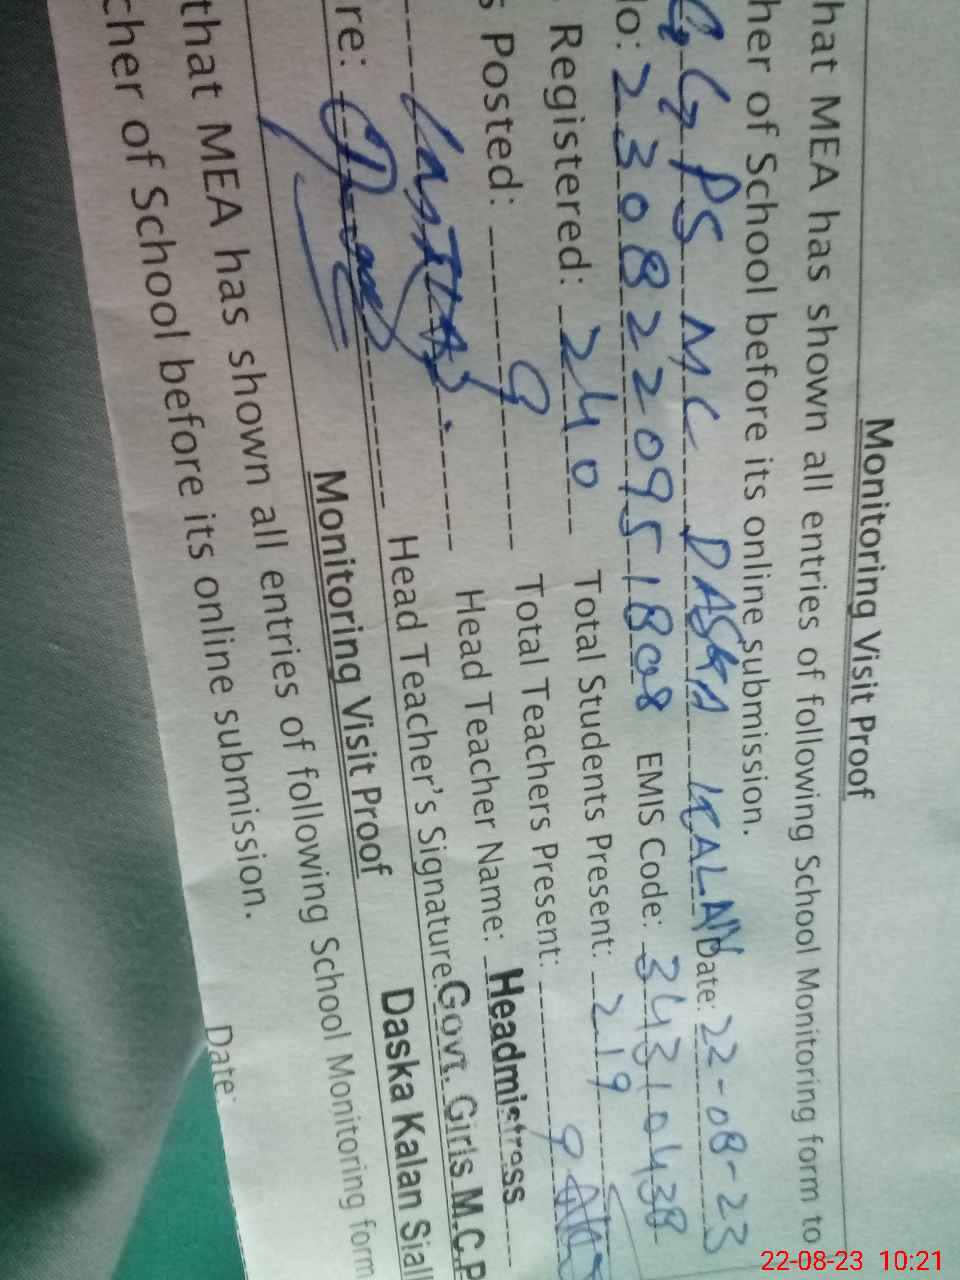 Monitoring Visit Proof
hat MEA has shown all entries of following School Monitoring form to
her of School before its online submission.
GGPS MC DASKA KALAN Date: 22-08-23
lo: 2308220951808 EMIS Code: 34310438
Registered: 240 Total Students Present: 219
s Posted: 9 Total Teachers Present: 9
Head Teacher Name: Headmistress
re: Head Teacher's Signature: Govt. Girls M.C.P
Daska Kalan Sial
Monitoring Visit Proof
that MEA has shown all entries of following School Monitoring form
cher of School before its online submission.
Date:
22-08-23 10:21